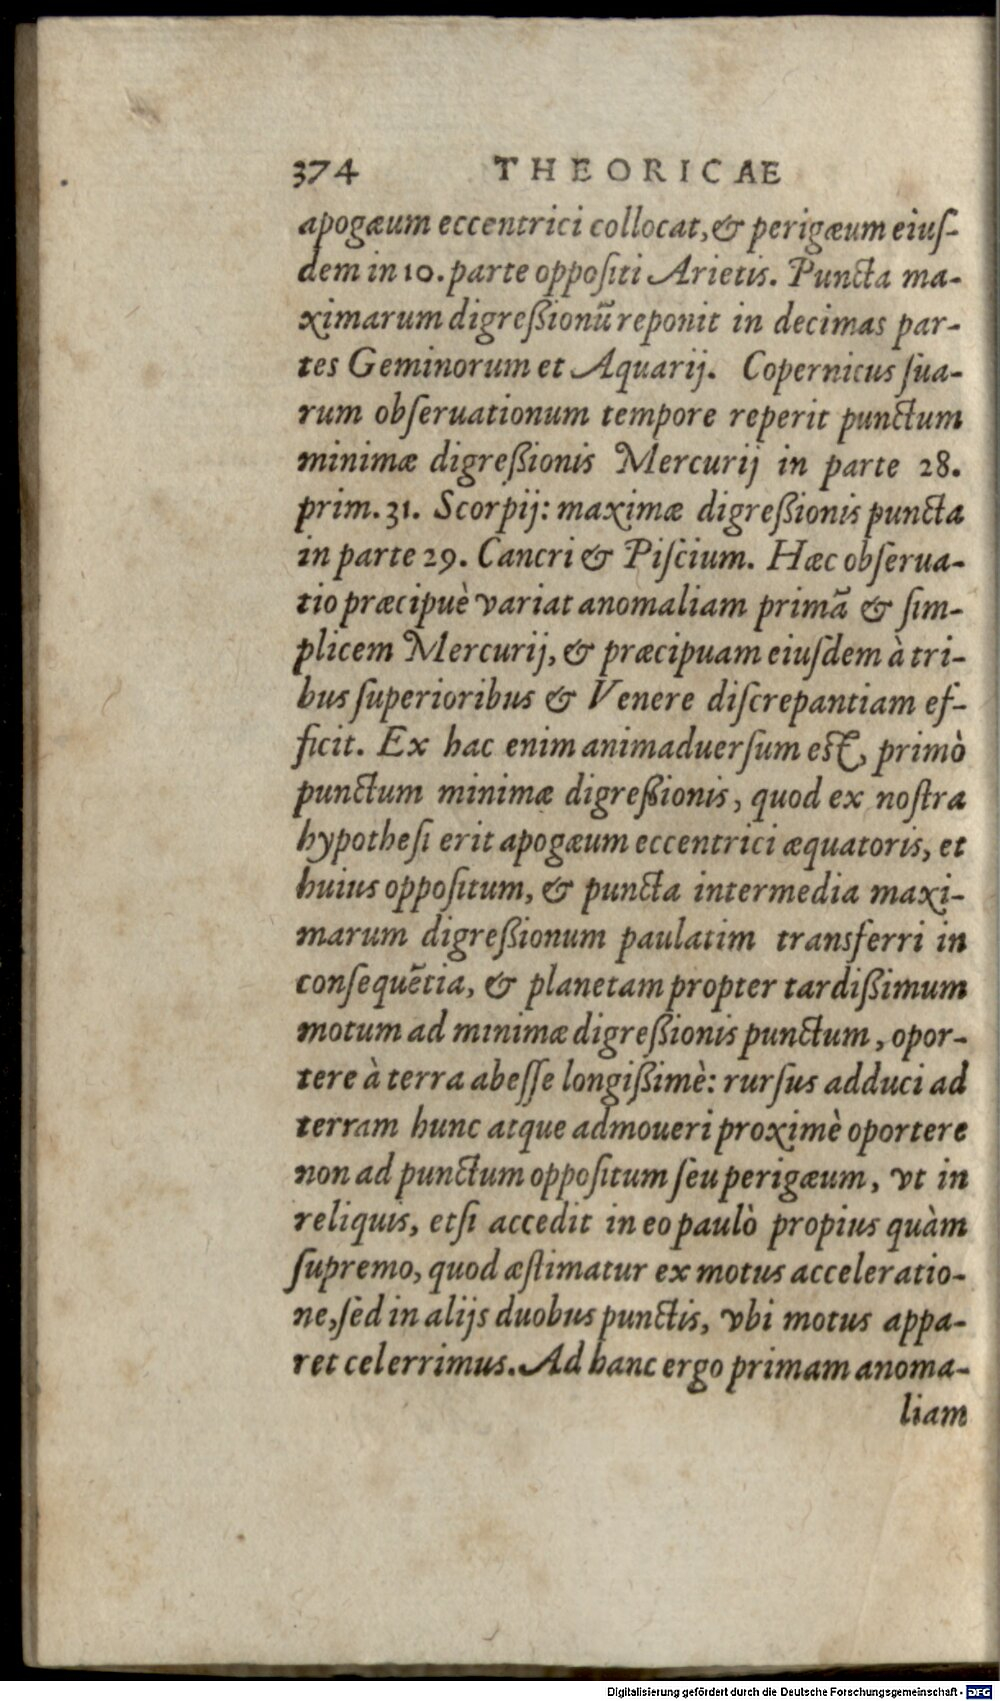 374 THEORICAE
apogæum eccentrici collocat, & perigæum eiuſ-
dem in 10. parte oppoſiti Arietis. Puncta ma-
ximarum digreßionũ reponit in decimas par-
tes Geminorum et Aquarij. Copernicus ſua-
rum obſeruationum tempore reperit punctum
minimæ digreßionis Mercurij in parte 28.
prim. 31. Scorpij: maximæ digreßionis puncta
in parte 29. Cancri & Piſcium. Hæc obſerua-
tio præcipuè variat anomaliam primã & ſim-
plicem Mercurij, & præcipuam eiuſdem à tri-
bus ſuperioribus & Venere diſcrepantiam ef-
ficit. Ex hac enim animaduerſum eſt, primò
punctum minimæ digreßionis, quod ex noſtra
hypotheſi erit apogæum eccentrici æquatoris, et
huius oppoſitum, & puncta intermedia maxi-
marum digreßionum paulatim transferri in
conſequẽtia, & planetam propter tardißimum
motum ad minimæ digreßionis punctum, opor-
tere à terra abeſſe longißimè: rurſus adduci ad
terram hunc atque admoueri proximè oportere
non ad punctum oppoſitum ſeu perigæum, vt in
reliquis, etſi accedit in eo paulò propius quàm
ſupremo, quod æſtimatur ex motus acceleratio-
ne, ſed in alijs duobus punctis, vbi motus appa-
ret celerrimus. Ad hanc ergo primam anoma-
liam
Digitalisierung gefördert durch die Deutsche Forschungsgemeinschaft - DFG